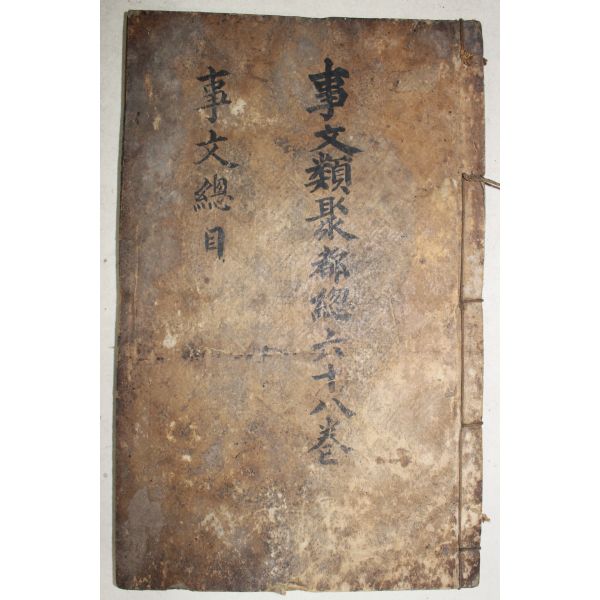 事文類聚都總六十八卷
事文總目